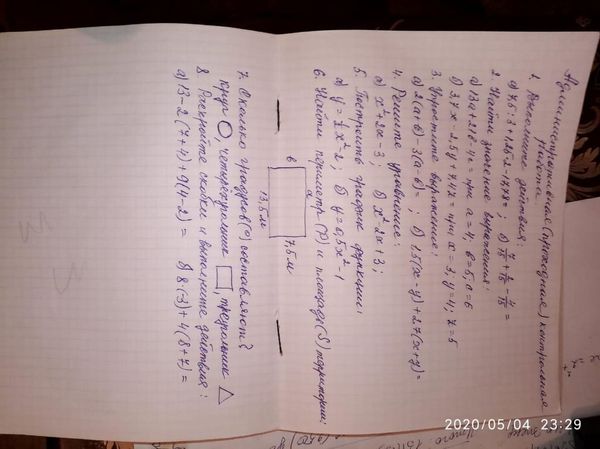 Административная (проходная) контрольная
работа.
1. Выполните действия:
а) 75:3+126·2-1778=; б) 7/15 + 6/15 - 4/15 =
2. Найти значение выражения:
а) 13а+21в-4с= при а=4; в=5; с=6
б) 3,7х-2,5у+7,4z= при х=3; у=4; z=5
3. Упростите выражение:
а) 2(а+в)-3(а-в)=; б) 1,5(х-у)+2,7(х+у)=
4. Решите уравнение:
а) х²+2х-3; б) х² 2х+3;
5. Построить график функции:
а) у=½х²-2; б) у=0,5х²-1
6. Найти периметр (Р) и площадь (S) территории:
а
в
7,5м
13,5м
7. Сколько градусов (°) составляют?
круг, четырёхугольник, треугольник
8. Раскройте скобки и выполните действия:
а) 13-2(7+4)+9(4-2)= б) 8(-3)+4(8+7)=
2020/05/04 23:29